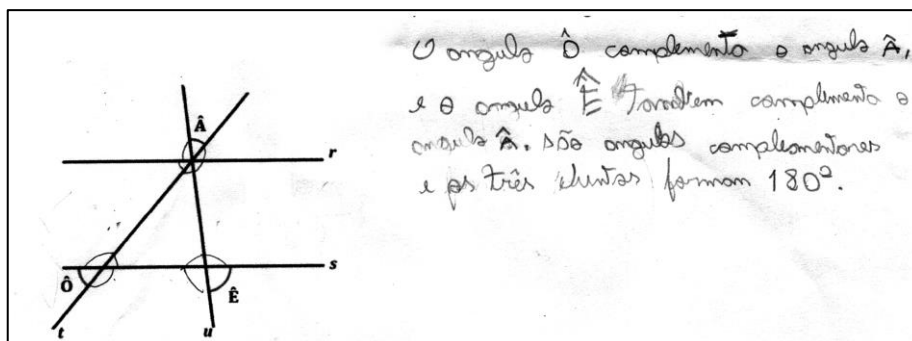 O angulo Ô complemento o angulo Â,
e o angulo Ê tambem complementa o
angulo Â. são angulos complementares
e os três juntos formam 180º.
Â
r
s
Ô
Ê
t
u